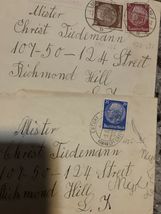 Mister
Christ Tiedemann
107-50-124 Street
Richmond Hill
L. I.
Mister
Christ Tiedemann
107-50-124 Street
Richmond Hill
L. I.